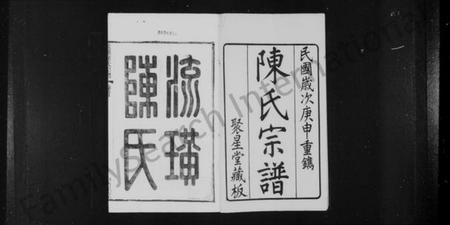 民國歲次庚申重鐫
陳氏宗譜
聚星堂藏板
流璜
陳氏
FamilySearch International